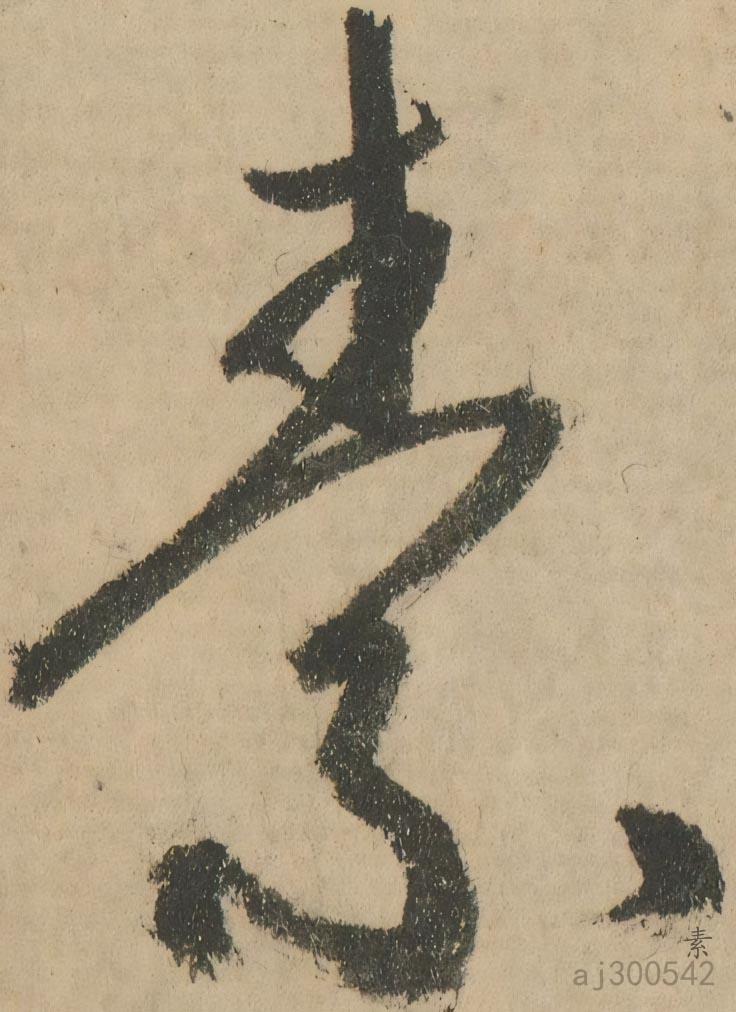 素
素
aj300542